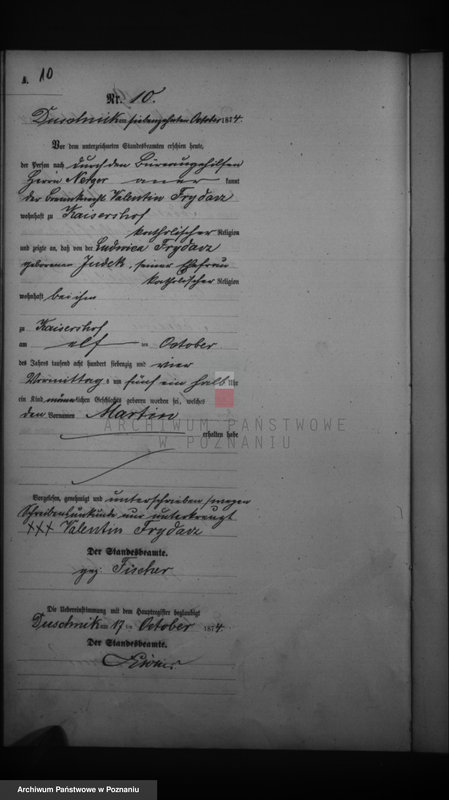 A. 10
Nr. 10.
Duschnik am siebenzehnten October 1874.
Vor dem unterzeichneten Standesbeamten erschien heute,
der Person nach durch den Büreaugehülfen
Herrn Netzer anerkannt
der Valentin Frydarz
wohnhaft zu Kaisershof
katholischer Religion
und zeigte an, daß von der Ludovica Frydarz
geborenen Judek, seiner Ehefrau
katholischer Religion
wohnhaft bei ihm
zu Kaisershof
am elf ten October
des Jahres tausend acht hundert siebenzig und vier
Vormittags um fünf ein halb Uhr
ein Kind männlichen Geschlechts geboren worden sei, welches
den Vornamen Martin
erhalten habe
ARCHIWUM PAŃSTWOWE
W POZNANIU
Vorgelesen, genehmigt und unterschrieben wegen
Schreibensunkunde nur unterkreuzt
XXX Valentin Frydarz
Der Standesbeamte.
gez. Fischer
Die Uebereinstimmung mit dem Hauptregister beglaubigt
Duschnik am 17 ten October 1874.
Der Standesbeamte.
Archiwum Państwowe w Poznaniu